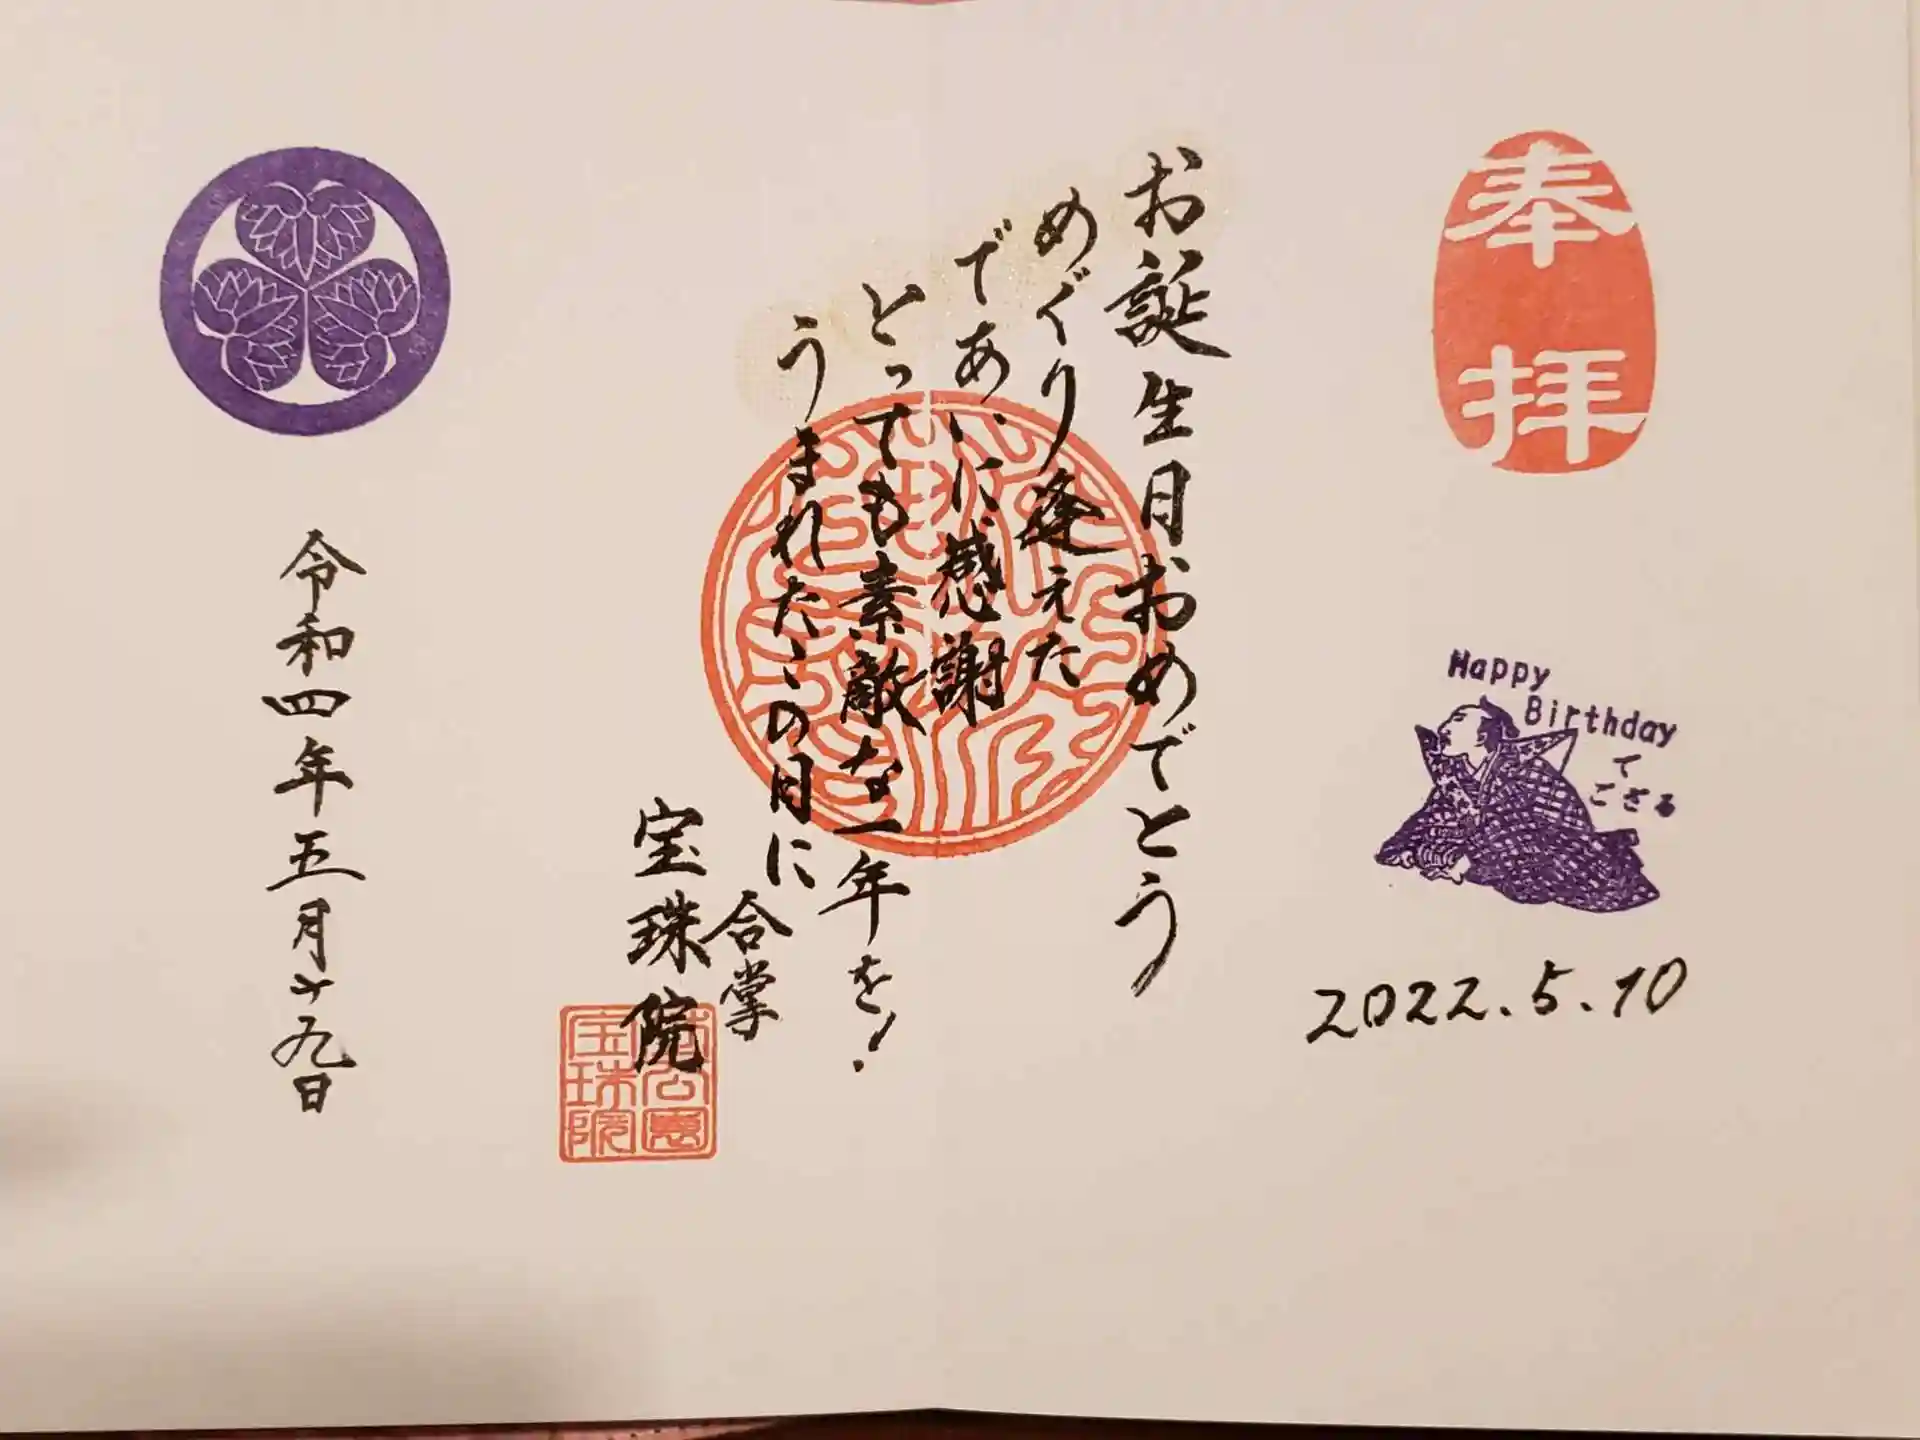 奉拝
Happy
Birthday
で
ござる
2022.5.10
お誕生日おめでとう
めぐり逢えた
であいに感謝
とっても素敵な一年を!
うまれたこの日に
合掌
宝珠院
宝珠院
令和四年五月十九日